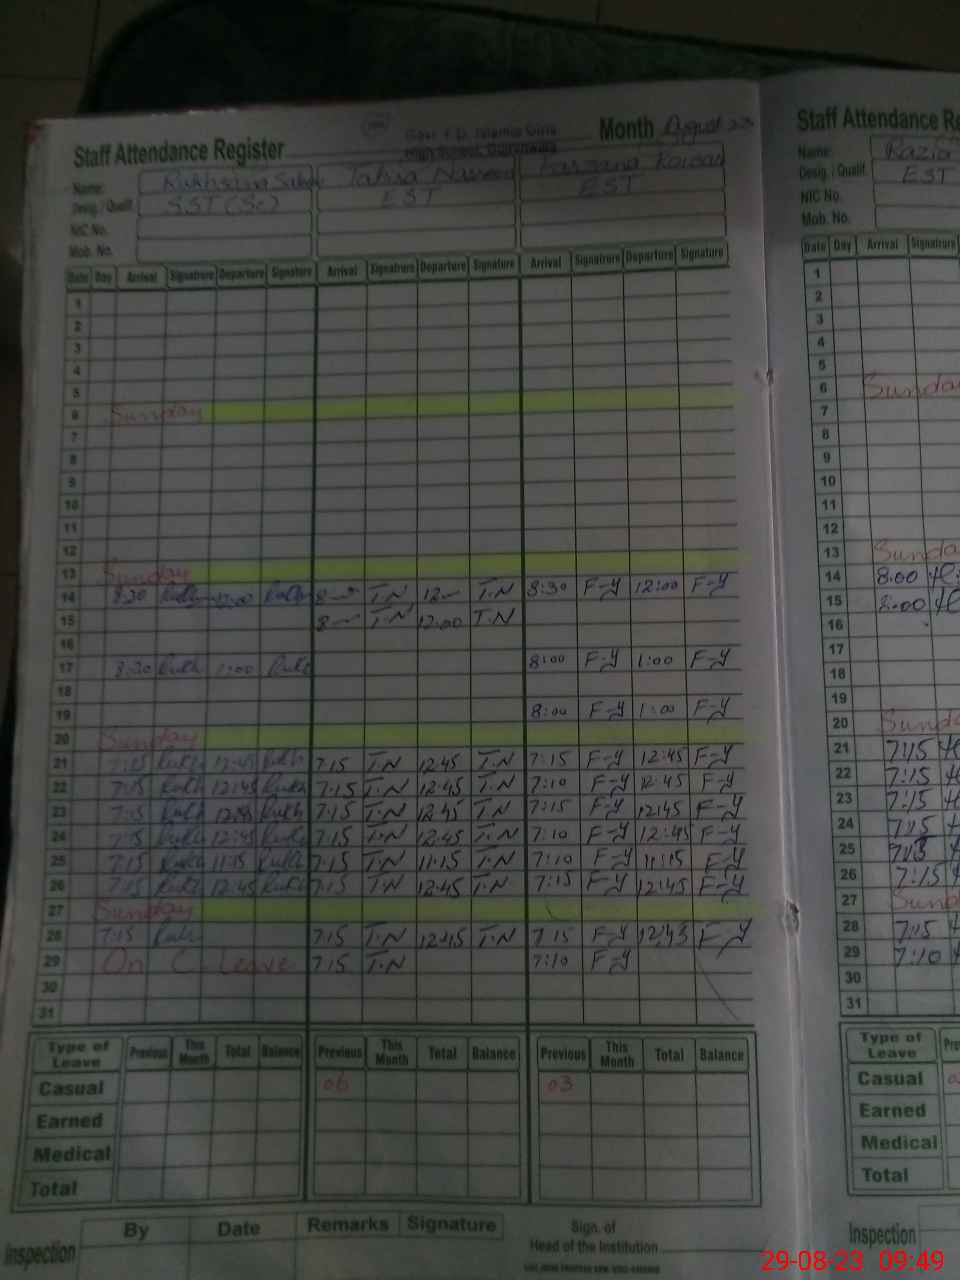 Month August 23
Staff Attendance Register
Name: Rukhsana Tahira Farzana
Desig. / Qualif. SST (Sc) EST EST
NIC No.
Mob. No.
Date Day Arrival Signatrure Departure Signature Arrival Signatrure Departure Signature Arrival Signatrure Departure Signature
1
2
3
4
5
6 Sunday
7
8
9
10
11
12
13 Sunday
14 8:30 12:00 8 T.N 12 T.N 8:30 F-Y 12:00 F-Y
15 8 T.N 12:00 T.N
16
17 8:30 Rukh 1:00 Rukh 8:00 F-Y 1:00 F-Y
18
19 8:00 F-Y 1:00 F-Y
20 Sunday
21 7:15 Rukh 12:45 Rukh 7:15 T.N 12:45 T.N 7:15 F-Y 12:45 F-Y
22 7:15 Rukh 12:45 Rukh 7:15 T.N 12:45 T.N 7:10 F-Y 12:45 F-Y
23 7:15 Rukh 12:45 Rukh 7:15 T.N 12:45 T.N 7:15 F-Y 12:45 F-Y
24 7:15 Rukh 12:45 Rukh 7:15 T.N 12:45 T.N 7:10 F-Y 12:45 F-Y
25 7:15 Rukh 11:15 Rukh 7:15 T.N 11:15 T.N 7:10 F-Y 11:15 F-Y
26 7:15 Rukh 12:45 Rukh 7:15 T.N 12:45 T.N 7:15 F-Y 12:45 F-Y
27 Sunday
28 7:15 Rukh 7:15 T.N 12:45 T.N 7:15 F-Y 12:45 F-Y
29 On C. Leave 7:15 T.N 7:10 F-Y
30
31
Type of Leave Previous This Month Total Balance Previous This Month Total Balance Previous This Month Total Balance
Casual 06 03
Earned
Medical
Total
Inspection By Date Remarks Signature
Sign. of
Head of the Institution
Staff Attendance Re
Name: Razia
Desig. / Qualif. EST
NIC No.
Mob. No.
Date Day Arrival Signatrure
1
2
3
4
5
6 Sunday
7
8
9
10
11
12
13 Sunda
14 8:00
15 8:00
16
17
18
19
20 Sunda
21 7:15
22 7:15
23 7:15
24 7:15
25 7:15
26 7:15
27 Sund
28 7:15
29 7:10
30
31
Type of Leave Pre
Casual
Earned
Medical
Total
Inspection
29-08-23 09:49